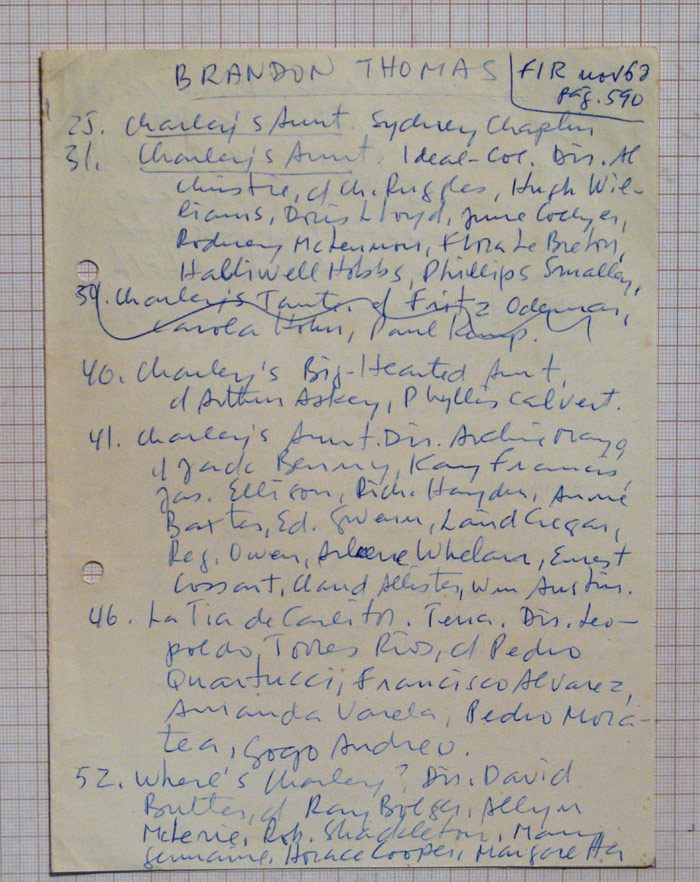 BRANDON THOMAS
FIR nov 62
pág. 590
25. Charley's Aunt. Sydney Chaplin
31. Charley's Aunt. Ideal-Col. Dir. Al
Christie, d Ch. Ruggles, Hugh Wil-
liams, Doris Lloyd, June Collyer,
Rodney McLennon, Flora Le Breton,
Halliwell Hobbs, Phillips Smalley,
39. Charley's Tante, d Fritz Odemar,
Carola Höhn, Paul Kemp.
40. Charley's Big-Hearted Aunt,
d Arthur Askey, Phyllis Calvert.
41. Charley's Aunt. Dir. Archie Mayo
d Jack Benny, Kay Francis
Jas. Ellison, Rich. Haydn, Anne
Baxter, Ed. Gwenn, Laird Cregar,
Reg. Owen, Arleene Whelan, Ernest
Cossart, Claud Allister, Wm Austin.
46. La Tia de Carlitos. Terra. Dir. Leo-
poldo, Torres Rios, d Pedro
Quartucci, Francisco Alvarez,
Amanda Varela, Pedro Mora-
tea, Gogo Andreu.
52. Where's Charley? Dir. David
Butler, d Ray Bolger, Allyn
McLerie, Rob. Shackleton, Mary
Germaine, Horace Cooper, Margaretta